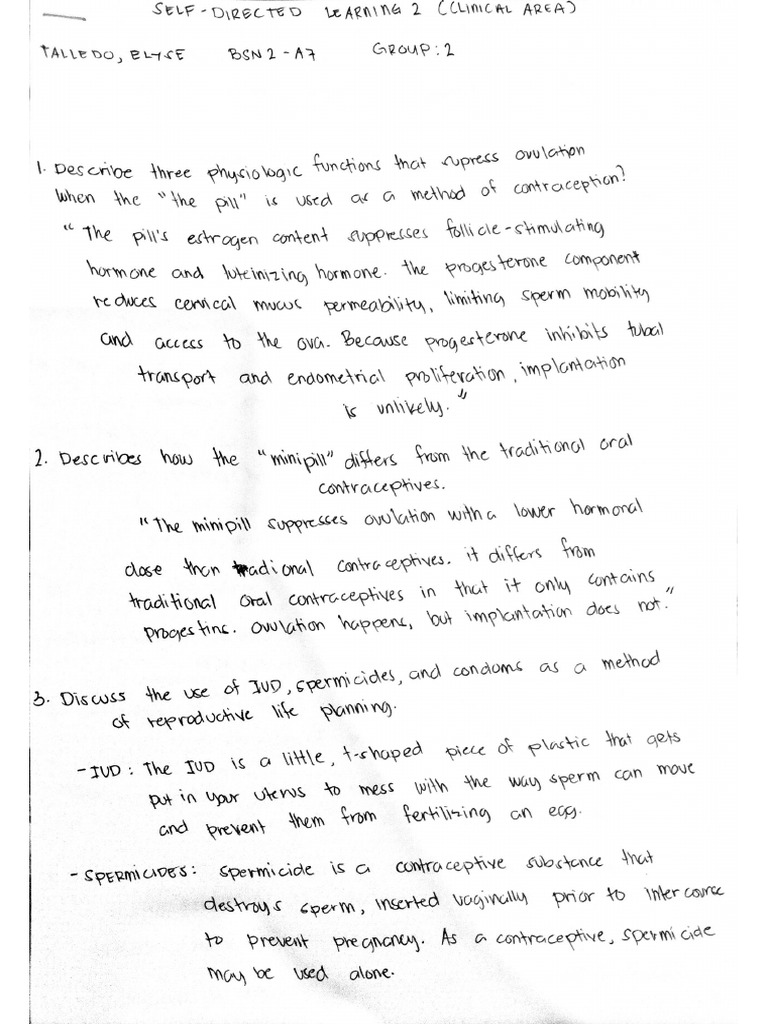 SELF-DIRECTED LEARNING 2 (CLINICAL AREA)
TALLEDO, ELYSE BSN2-A7 GROUP: 2
1. Describe three physiologic functions that supress ovulation
when the "the pill" is used as a method of contraception?
"The pill's estrogen content suppresses follicle-stimulating
hormone and luteinizing hormone. The progesterone component
reduces cervical mucus permeability, limiting sperm mobility
and access to the ova. Because progesterone inhibits tubal
transport and endometrial proliferation, implantation
is unlikely."
2. Describes how the "minipill" differs from the traditional oral
contraceptives.
"The minipill suppresses ovulation with a lower hormonal
dose than tradional contraceptives. it differs from
traditional oral contraceptives in that it only contains
progestins. Ovulation happens, but implantation does not."
3. Discuss the use of IUD, spermicides, and condoms as a method
of reproductive life planning.
- IUD: The IUD is a little, t-shaped piece of plastic that gets
put in your uterus to mess with the way sperm can move
and prevent them from fertilizing an egg.
- SPERMICIDES: Spermicide is a contraceptive substance that
destroys sperm, inserted vaginally prior to intercourse
to prevent pregnancy. As a contraceptive, spermicide
may be used alone.